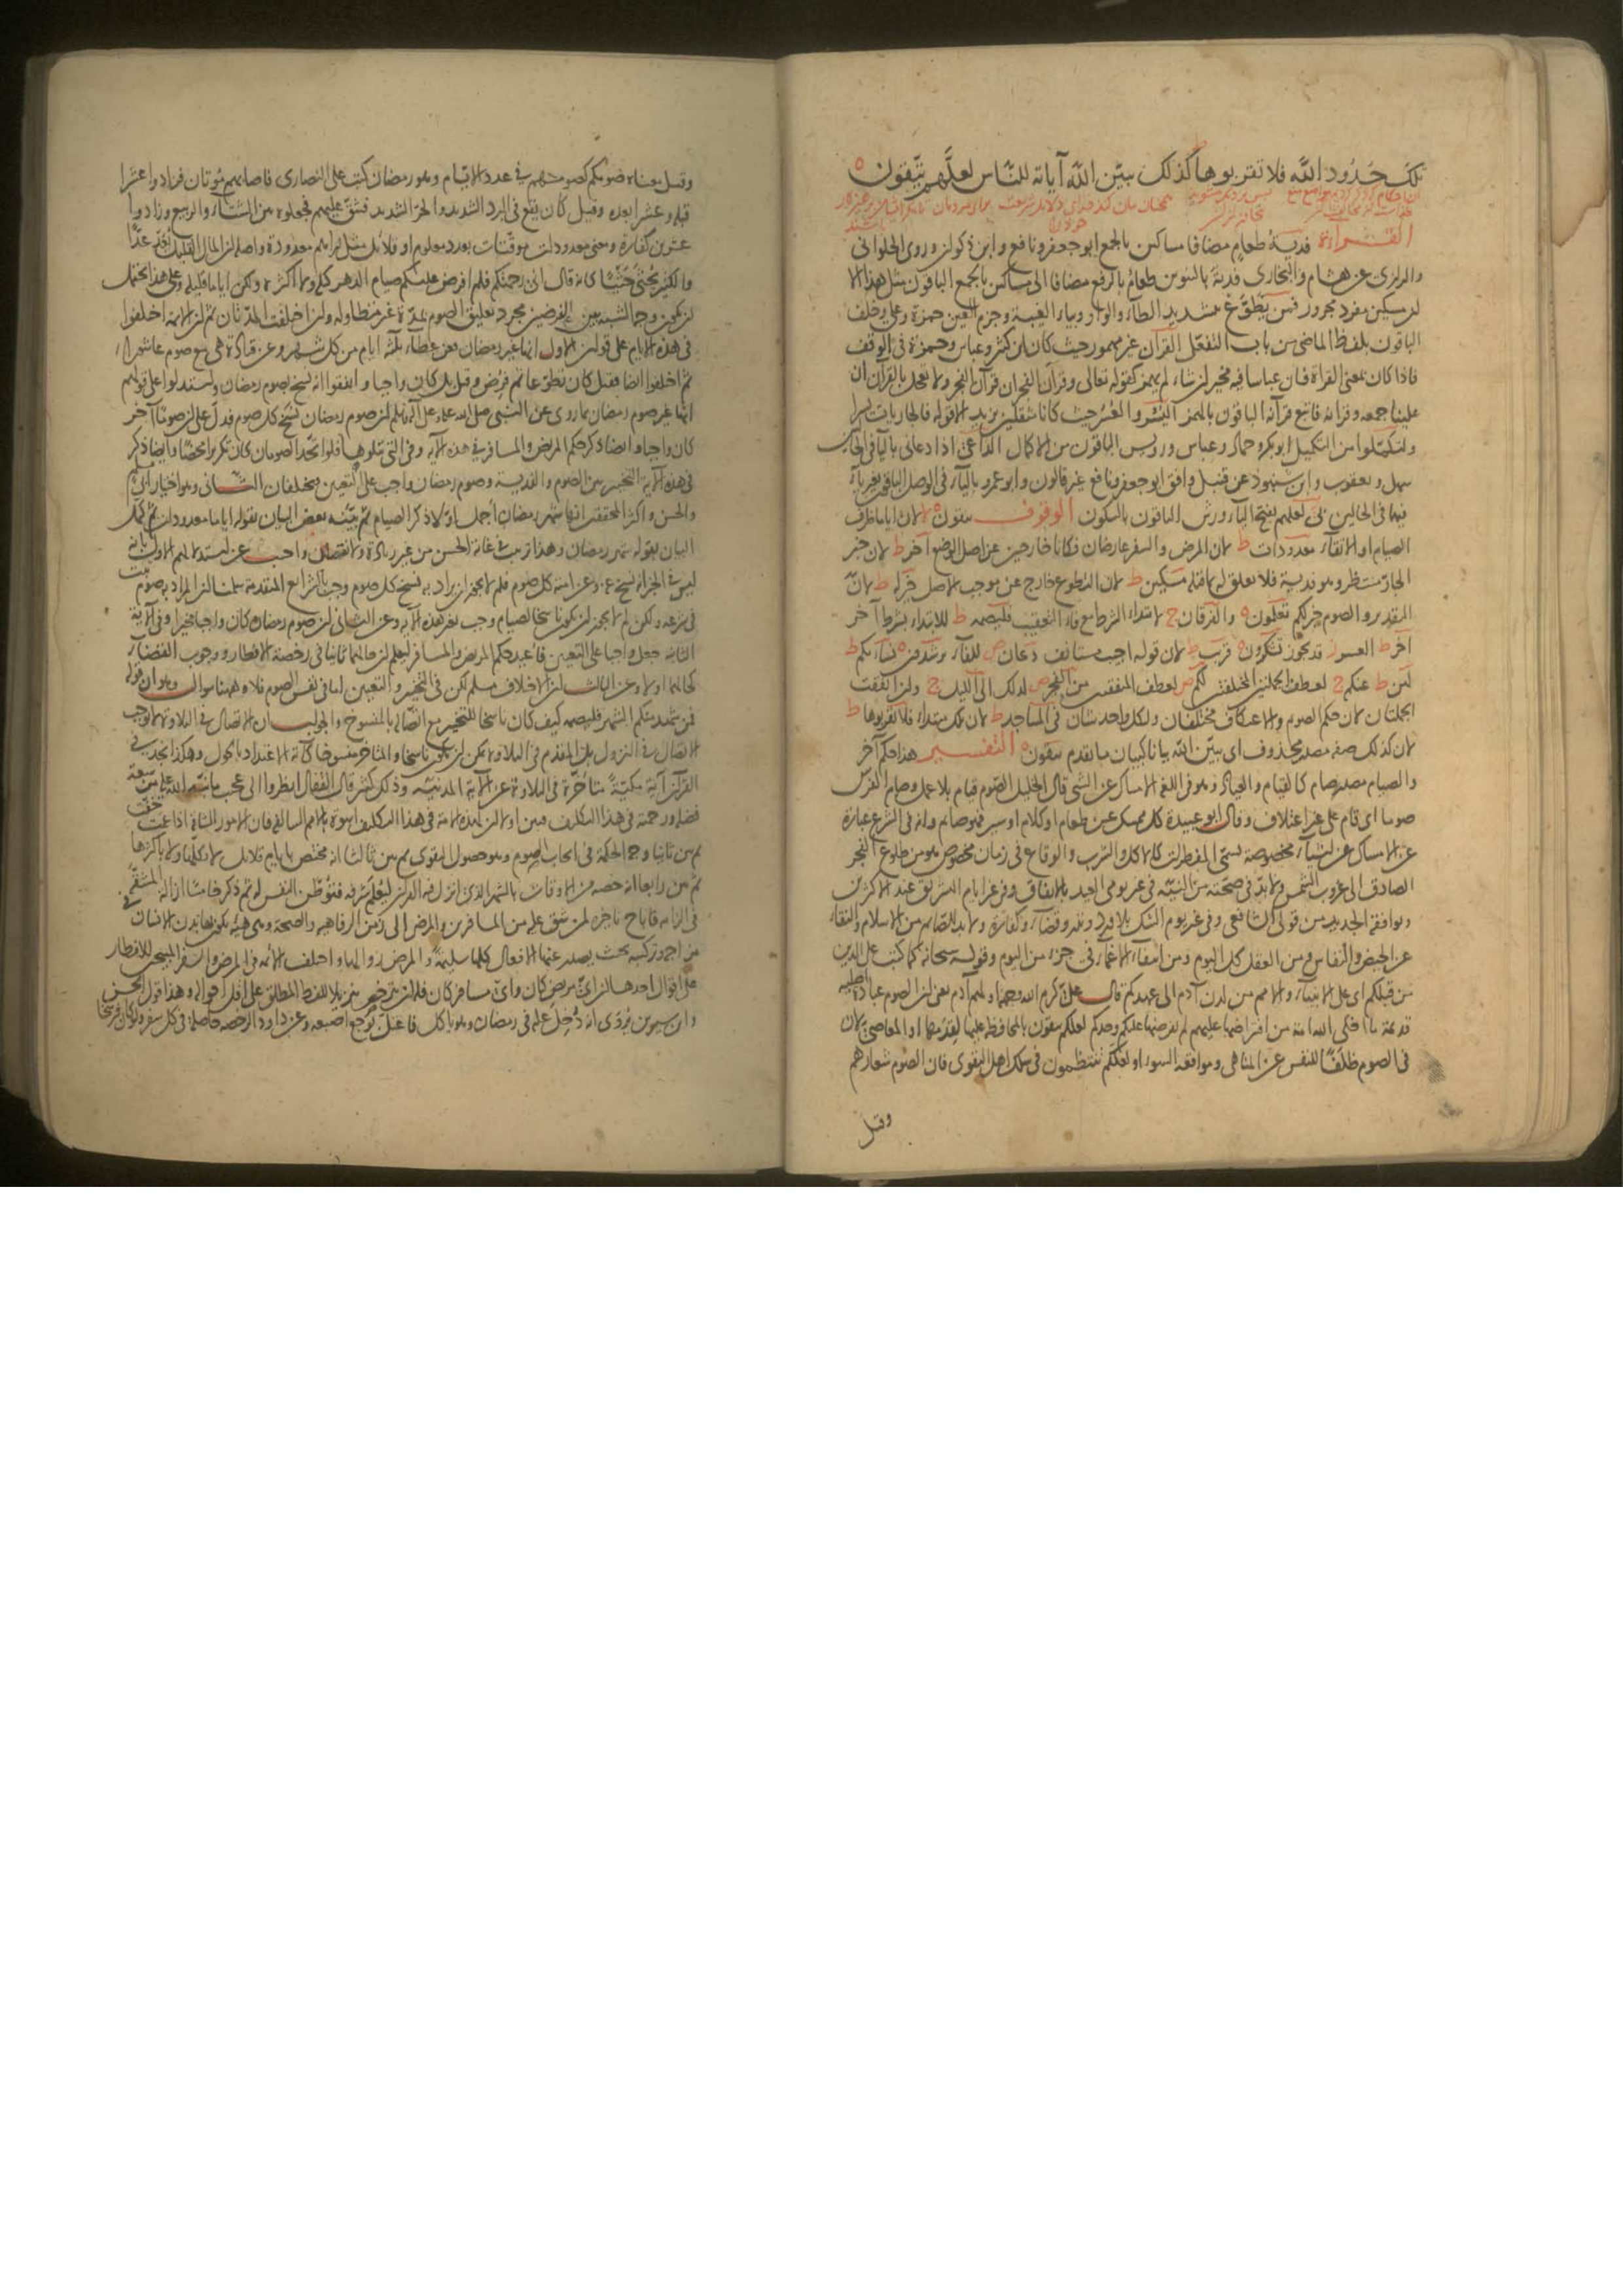 تلك حدود الله فلا تقربوها كذلك يبين الله آياته للناس لعلهم يتقون
القراءة فدية طعام مضافا مساكين بالجمع ابو جعفر ونافع وابن ذكوان وروى الحلواني
والرازي عن هشام والنجاري فدية بالتنوين طعام بالرفع مضافا الى مساكين بالجمع الباقون مثل هذا الا
ان مسكين مفرد مجرور فمن يطوع بتشديد الطاء والواو وبياء الغيبة وجزم العين حمزة وعلي وخلف
الباقون بلفظ الماضي من باب التفعل القران غير مهموز حيث كان ابن كثير وعباس وحمزة في الوقف
فاذا كان بمعنى القراة فان عباسا فيه مخير ان شاء لم يهمز كقوله تعالى وقرآن الفجر ان قرآن الفجر ولا تعجل بالقرآن ان
علينا جمعه وقرانه فاتبع قرآنه الباقون بالهمز اليسر والعسر حيث كانا مثقلين يزيد الا قوله فالجاريات يسرا
ولتكملوا من التكميل ابو بكر وحماد وعباس ورويس الباقون من الاكمال الداعي اذا دعاني بالياء في الحالين
سهل ويعقوب وابن شنبوذ عن قنبل وافق ابو جعفر ونافع غير قالون وابو عمرو بالياء في الوصل الباقون بغير ياء
فيهما في الحالين بي لعلهم بفتح الياء ورش الباقون بالسكون الوقوف تتقون لا لان اياما ظرف
الصيام او الاتقاء معدودات ط لان المرض والسفر عارضان فكانا خارجين عن اصل الوضع اخر ط لان خبر
الجار منتظر وهو فدية فلا تعلق له بما قبله مسكين ط لان التطوع خارج عن موجب الاصل خير له ط لان
التقدير والصوم خير لكم تعلمون والفرقان ج لابتداء الشرط مع فاء التعقيب فليصمه ط للابتداء بشرط آخر
اخر ط العسر ز قد يجوز تشكرون قريب ط لان قوله اجيب مستانف دعان ص للفاء يرشدون نسائكم ط
لهن ط عنكم ج لعطف الجملتين المختلفتين لكم ص لعطف المتفقتين من الفجر ص لذلك الى الليل ج وان اتفقت
الجملتان لان حكم الصوم والاعتكاف مختلفان ولكل واحد شان في المساجد ط لان تلك مبتداء فلا تقربوها ط
لان كذلك صفة مصدر محذوف اي يبين الله بيانا كبيان ما تقدم يتقون التفسير هذا حكم آخر
والصيام مصدر صام كالقيام والعياد وهو في اللغة الامساك عن الشي قال الخليل الصوم قيام بلا عمل وصام الفرس
صوما اي قام على غير اعتلاف وقال ابو عبيدة كل ممسك عن طعام او كلام او سير فهو صائم وانه في الشرع عبارة
عن الامساك عن اشياء مخصوصة تسمى المفطرات كالاكل والشرب والوقاع في زمان مخصوص هو من طلوع الفجر
الصادق الى غروب الشمس ولا بد في صحته من النية في غير يومي العيد بالاتفاق وفي غير ايام التشريق عند الاكثرين
وتوافقه الجديد من قولي الشافعي وفي غير يوم الشك بلا ورد ونذر وقضاء وكفارة ولا بد للصائم من الاسلام والنقاء
عن الحيض والنفاس ومن العقل كل اليوم ومن انتفاء الاغماء في جزء من اليوم وقوله سبحانه كما كتب على الذين
من قبلكم اي على الانبياء والامم من لدن آدم الى عهدكم قال علي كرم الله وجهه اولهم آدم يعني ان الصوم عبادة اصلية
قديمة ما اخلى الله امة من افتراضها عليهم لم يفرضها عليكم وحدكم لعلكم تتقون بالمحافظة عليها لقدمها او المعاصي لان
في الصوم ظلفا للنفس عن المناهي ومواقعة السوء او لعلكم تنتظمون في سلك اهل التقوى فان الصوم شعارهم
وقيل
وقيل معناه صومكم كصومهم في عدد الايام وهو رمضان كتب على النصارى فاصابهم موتان فزادوا عشرا
قبله وعشرا بعده وقيل كان يقع في البرد الشديد والحر الشديد فشق عليهم فجعلوه بين الشتاء والربيع وزادوا
عشرين كفارة ومعنى معدودات موقتات بعدد معلوم او قلائل مثل دراهم معدودة واصله ان المال القليل يقدر عدا
والكثير يحثى حثيا كانه قال اني رحمتكم فلم افرض عليكم صيام الدهر كله ولا اكثره ولكن اياما قليلة وعلى هذا يحتمل
ان يكون وجه التشبيه بين الفرضين مجرد تعليق الصوم بمدة غير متطاولة وان اختلفت المدتان ثم ان الائمة اختلفوا
في هذه الايام على قولين الاول انها غير رمضان فعن عطاء ثلثة ايام من كل شهر وعن قتادة هي مع صوم عاشوراء
ثم اختلفوا ايضا فقيل كان تطوعا ثم فرض وقيل بل كان واجبا واتفقوا انه نسخ بصوم رمضان واستدلوا على قولهم
انها غير صوم رمضان بما روي عن النبي صلى الله عليه وعلى آله وسلم ان صوم رمضان نسخ كل صوم فدل على ان صوما آخر
كان واجبا وايضا ذكر حكم المريض والمسافر في هذه الآية وفي التي تتلوها فلو اتحد الصومان كان تكريرا محضا وايضا ذكر
في هذه الآية التخيير بين الصوم والفدية وصوم رمضان واجب على التعيين فيختلفان الثاني وهو اختيار ابي مسلم
والحسن واكثر المحققين انها شهر رمضان اجمل اولا ذكر الصيام ثم بينه بعض البيان بقوله اياما معدودات ثم كمل
البيان بقوله شهر رمضان وهذا ترتيب في غاية الحسن من غير زيادة ولا نقصان واجيب عن استدلالهم الاول بانه
ليس في الخبر انه نسخ عنه وعن امته كل صوم فلم لا يجوز ان يراد به نسخ كل صوم وجب بالشرائع المتقدمة سلمنا ان المراد به صوم ثبت
في شرعه ولكن لم لا يجوز ان يكون ناسخا لصيام وجب بغير هذه الآية وعن الثاني ان صوم رمضان كان واجبا مخيرا وفي الآية
الثانية جعل واجبا على التعيين فاعيد حكم المريض والمسافر ليعلم ان حالهما ثانيا في رخصة الافطار ووجوب القضاء
كحالهما اولا وعن الثالث ان الاختلاف مسلم لكن في التخيير والتعيين اما في نفس الصوم فلا وههنا سوال وهو ان قوله
فمن شهد منكم الشهر فليصمه كيف كان ناسخا للتخيير مع اتصاله بالمنسوخ والجواب ان الاتصال في التلاوة لا يوجب
الاتصال في النزول بل المقدم في التلاوة يمكن ان يكون ناسخا والمتاخر منسوخا كآية الاعتداد بالحول وهكذا نجد في
القرآن آية مكية متاخرة في التلاوة عن الآية المدنية وذلك كثير قال القفال انظروا الى عجيب ما نبه الله عليه من سعة
فضله ورحمته في هذا التكليف فبين اولا ان لهذه الامة في هذا التكليف اسوة بالامم السالفة فان الامور الشاقة اذا عمت خفت
ثم بين ثانيا وجه الحكمة في ايجاب الصوم وهو حصول التقوى ثم بين ثالثا انه مختص بايام قلائل لا بكلها ولا باكثرها
ثم بين رابعا انه خصه من الاوقات بالشهر الذي انزل فيه القرآن ليعلم شرفه فتوطن النفس له ثم ذكر خامسا ازالة المشقة
في الزامه فاباح تاخيره لمن شق عليه من المسافرين والمرضى الى زمن الرفاهية والصحة وهي هيئة يكون بها بدن الانسان
في مزاجه وتركيبه بحيث يصدر عنها الافعال كلها سليمة والمرض زوالها واختلف الائمة في المرض والسفر المبيحين للافطار
على اقوال احدها ان اي مريض كان واي مسافر كان فله ان يترخص تنزيلا للفظ المطلق على اقل احواله وهذا قول الحسن
وابن سيرين يروى انه دخل عليه في رمضان وهو ياكل فاعتل بوجع اصبعه وعن داود الرخصة حاصلة في كل سفر ولو كان فرسخا